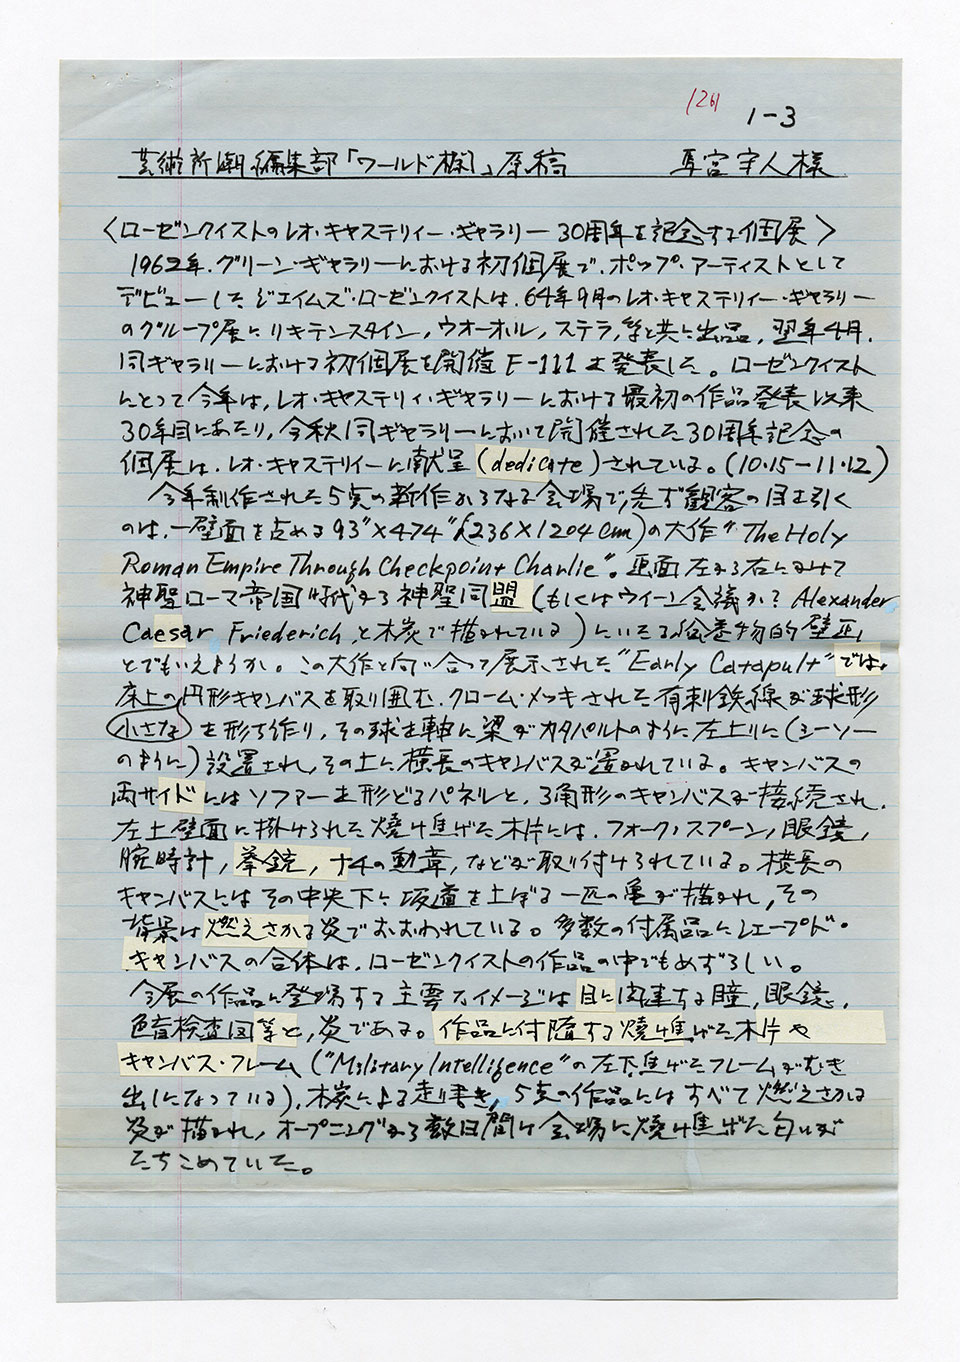 126
1-3
芸術新潮編集部「ワールド欄」原稿 宮宇人様
〈ローゼンクイストのレオ・キャステリィー・ギャラリー30周年を記念する個展〉
1962年、グリーン・ギャラリーにおける初個展で、ポップ・アーティストとして
デビューしたジェイムズ・ローゼンクイストは、64年9月のレオ・キャステリィー・ギャラリー
のグループ展にリキテンスタイン,ウォーホル,ステラ,等と共に出品,翌年4月,
同ギャラリーにおける初個展を開催 F-111を発表した。ローゼンクイスト
にとって今年は,レオ・キャステリィ・ギャラリーにおける最初の作品発表以来
30年目にあたり,今秋同ギャラリーにおいて開催された30周年記念の
個展は,レオ・キャステリィーに献呈(dedicate)されている。(10.15-11.12)
今年制作された5点の新作からなる会場で,先ず観客の目を引く
のは,一壁面を占める93"×474"(236×1204cm)の大作"The Holy
Roman Empire Through Checkpoint Charlie"。画面左から右にかけて
神聖ローマ帝国時代から神聖同盟(もしくはウィーン会議か? Alexander
Caesar Friederich と木炭で描かれている)にいたる絵巻物的壁画
とでもいえようか。この大作と向い合って展示された"Early Catapult"では。
床上の円形キャンバスを取り囲む,クローム・メッキされた有刺鉄線が球形
小さな を形ち作り,その球を軸に梁がカタパルトのように左上りに(シーソー
のように)設置され,その上に横長のキャンバスが置かれている。キャンバスの
両サイドにはソファーを形どるパネルと,3角形のキャンバスが接続され,
左上壁面に掛けられた焼け焦げた木片には,フォーク,スプーン,眼鏡,
腕時計,拳銃,ナチの勲章,などが取り付けられている。横長の
キャンバスにはその中央下に坂道を上ぼる一匹の亀が描かれ,その
背景は燃えさかる炎でおおわれている。多数の付属品にシェープド・
キャンバスの合体は,ローゼンクイストの作品の中でもめずらしい。
今展の作品に登場する主要なイメージは目に関連する瞳,眼鏡,
色盲検査図等と,炎である。作品に付随する焼け焦げた木片や
キャンバス・フレーム("Military Intelligence"の左下,焦げたフレームがむき
出しになっている),木炭による走り書き,5点の作品にはすべて燃えさかる
炎が描かれ,オープニングから数日間は会場に焼け焦げた匂いが
たちこめていた。